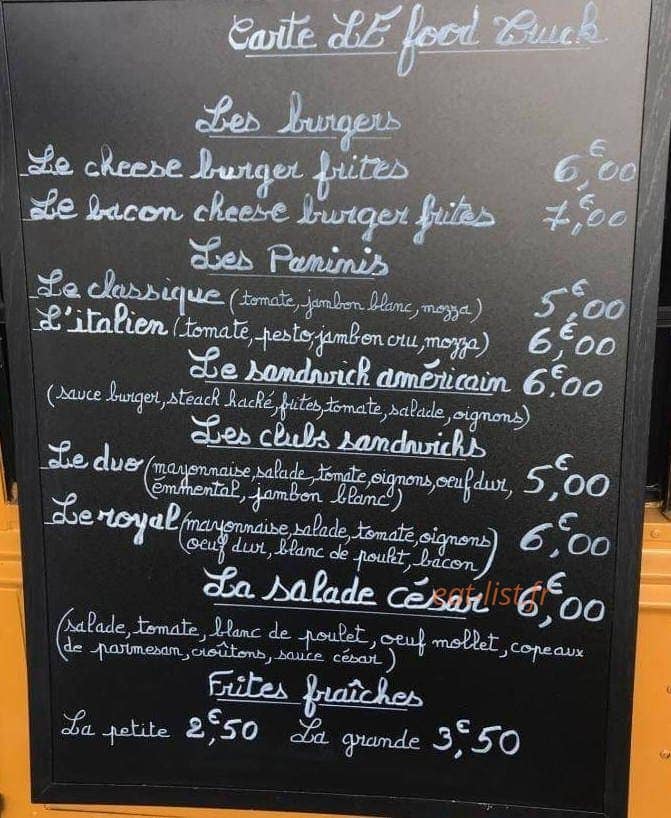 Carte LE food Truck
Les burgers
Le cheese burger frites 6,€00
Le bacon cheese burger frites 7,€00
Les Paninis
Le classique (tomate, jambon blanc, mozza) 5,€00
L'italien (tomate, pesto, jambon cru, mozza) 6,€00
Le sandwich américain 6,€00
(sauce burger, steack haché, frites, tomate, salade, oignons)
Les clubs sandwichs
Le duo (mayonnaise, salade, tomate, oignons, oeuf dur, 5,€00
émmental, jambon blanc)
Le royal (mayonnaise, salade, tomate, oignons 6,€00
oeuf dur, blanc de poulet, bacon)
La salade césar 6,€00
eat-list.fr
(salade, tomate, blanc de poulet, oeuf mollet, copeaux
de parmesan, croûtons, sauce césar)
Frites fraîches
La petite 2,€50 La grande 3,€50